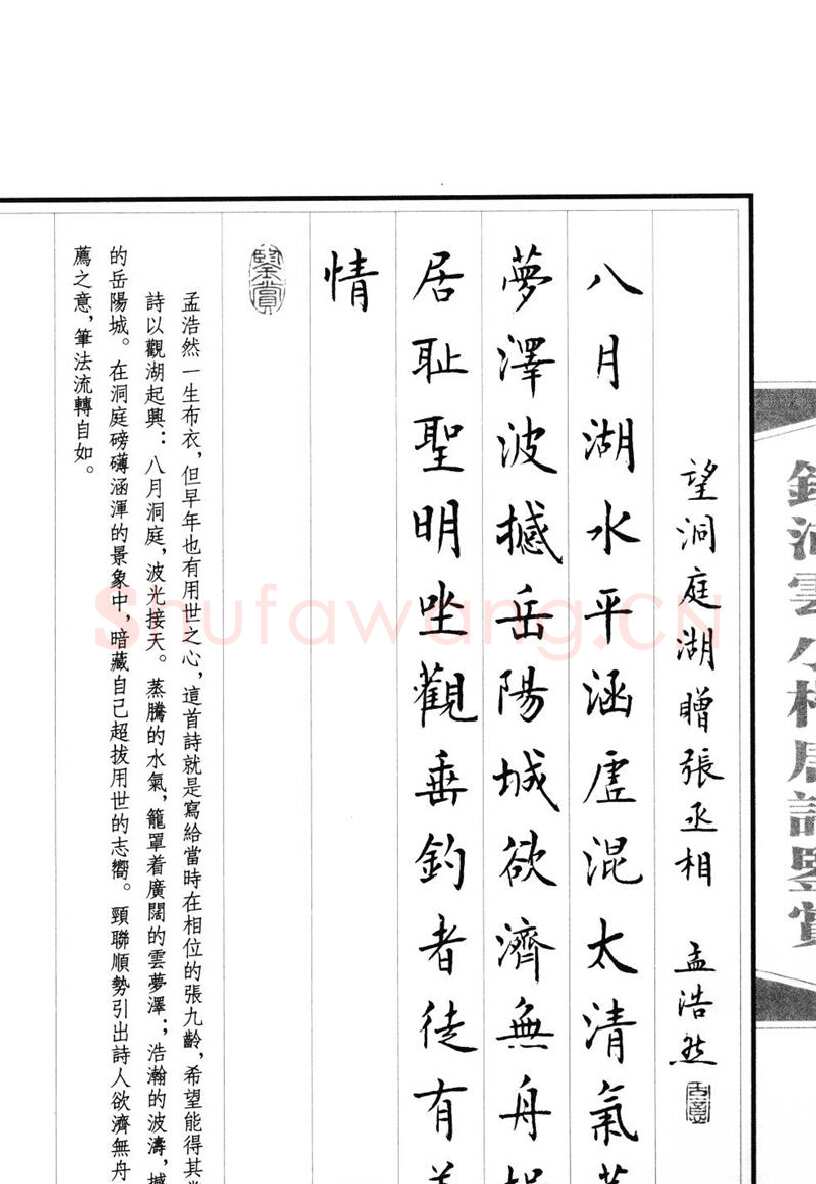 望洞庭湖贈張丞相 孟浩然
八月湖水平涵虛混太清氣
夢澤波撼岳陽城欲濟無舟
居耻聖明坐觀垂釣者徒有
情
鑒賞
孟浩然一生布衣,但早年也有用世之心,這首詩就是寫給當時在相位的張九齡,希望能得其
詩以觀湖起興:八月洞庭,波光接天。蒸騰的水氣,籠罩着廣闊的雲夢澤;浩瀚的波濤,撼
的岳陽城。在洞庭磅礴涵渾的景象中,暗藏自己超拔用世的志嚮。頸聯順勢引出詩人欲濟無舟
薦之意,筆法流轉自如。
Shufawang.CN